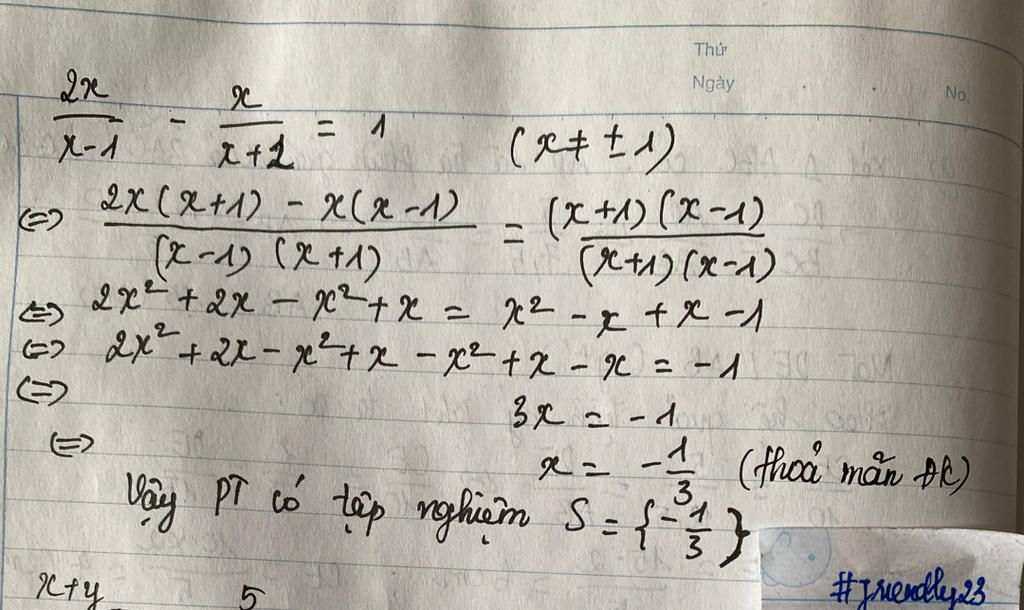 Thứ
Ngày
No.
2x/(x-1) - x/(x+1) = 1 (x ≠ ± 1)
<=> (2x(x+1) - x(x-1))/((x-1)(x+1)) = ((x+1)(x-1))/((x+1)(x-1))
<=> 2x² + 2x - x² + x = x² - x + x - 1
<=> 2x² + 2x - x² + x - x² + x - x = -1
<=> 3x = -1
<=> x = -1/3 (thoả mãn ĐK)
Vậy PT có tập nghiệm S = {-1/3}
x+y 5
#friendly23